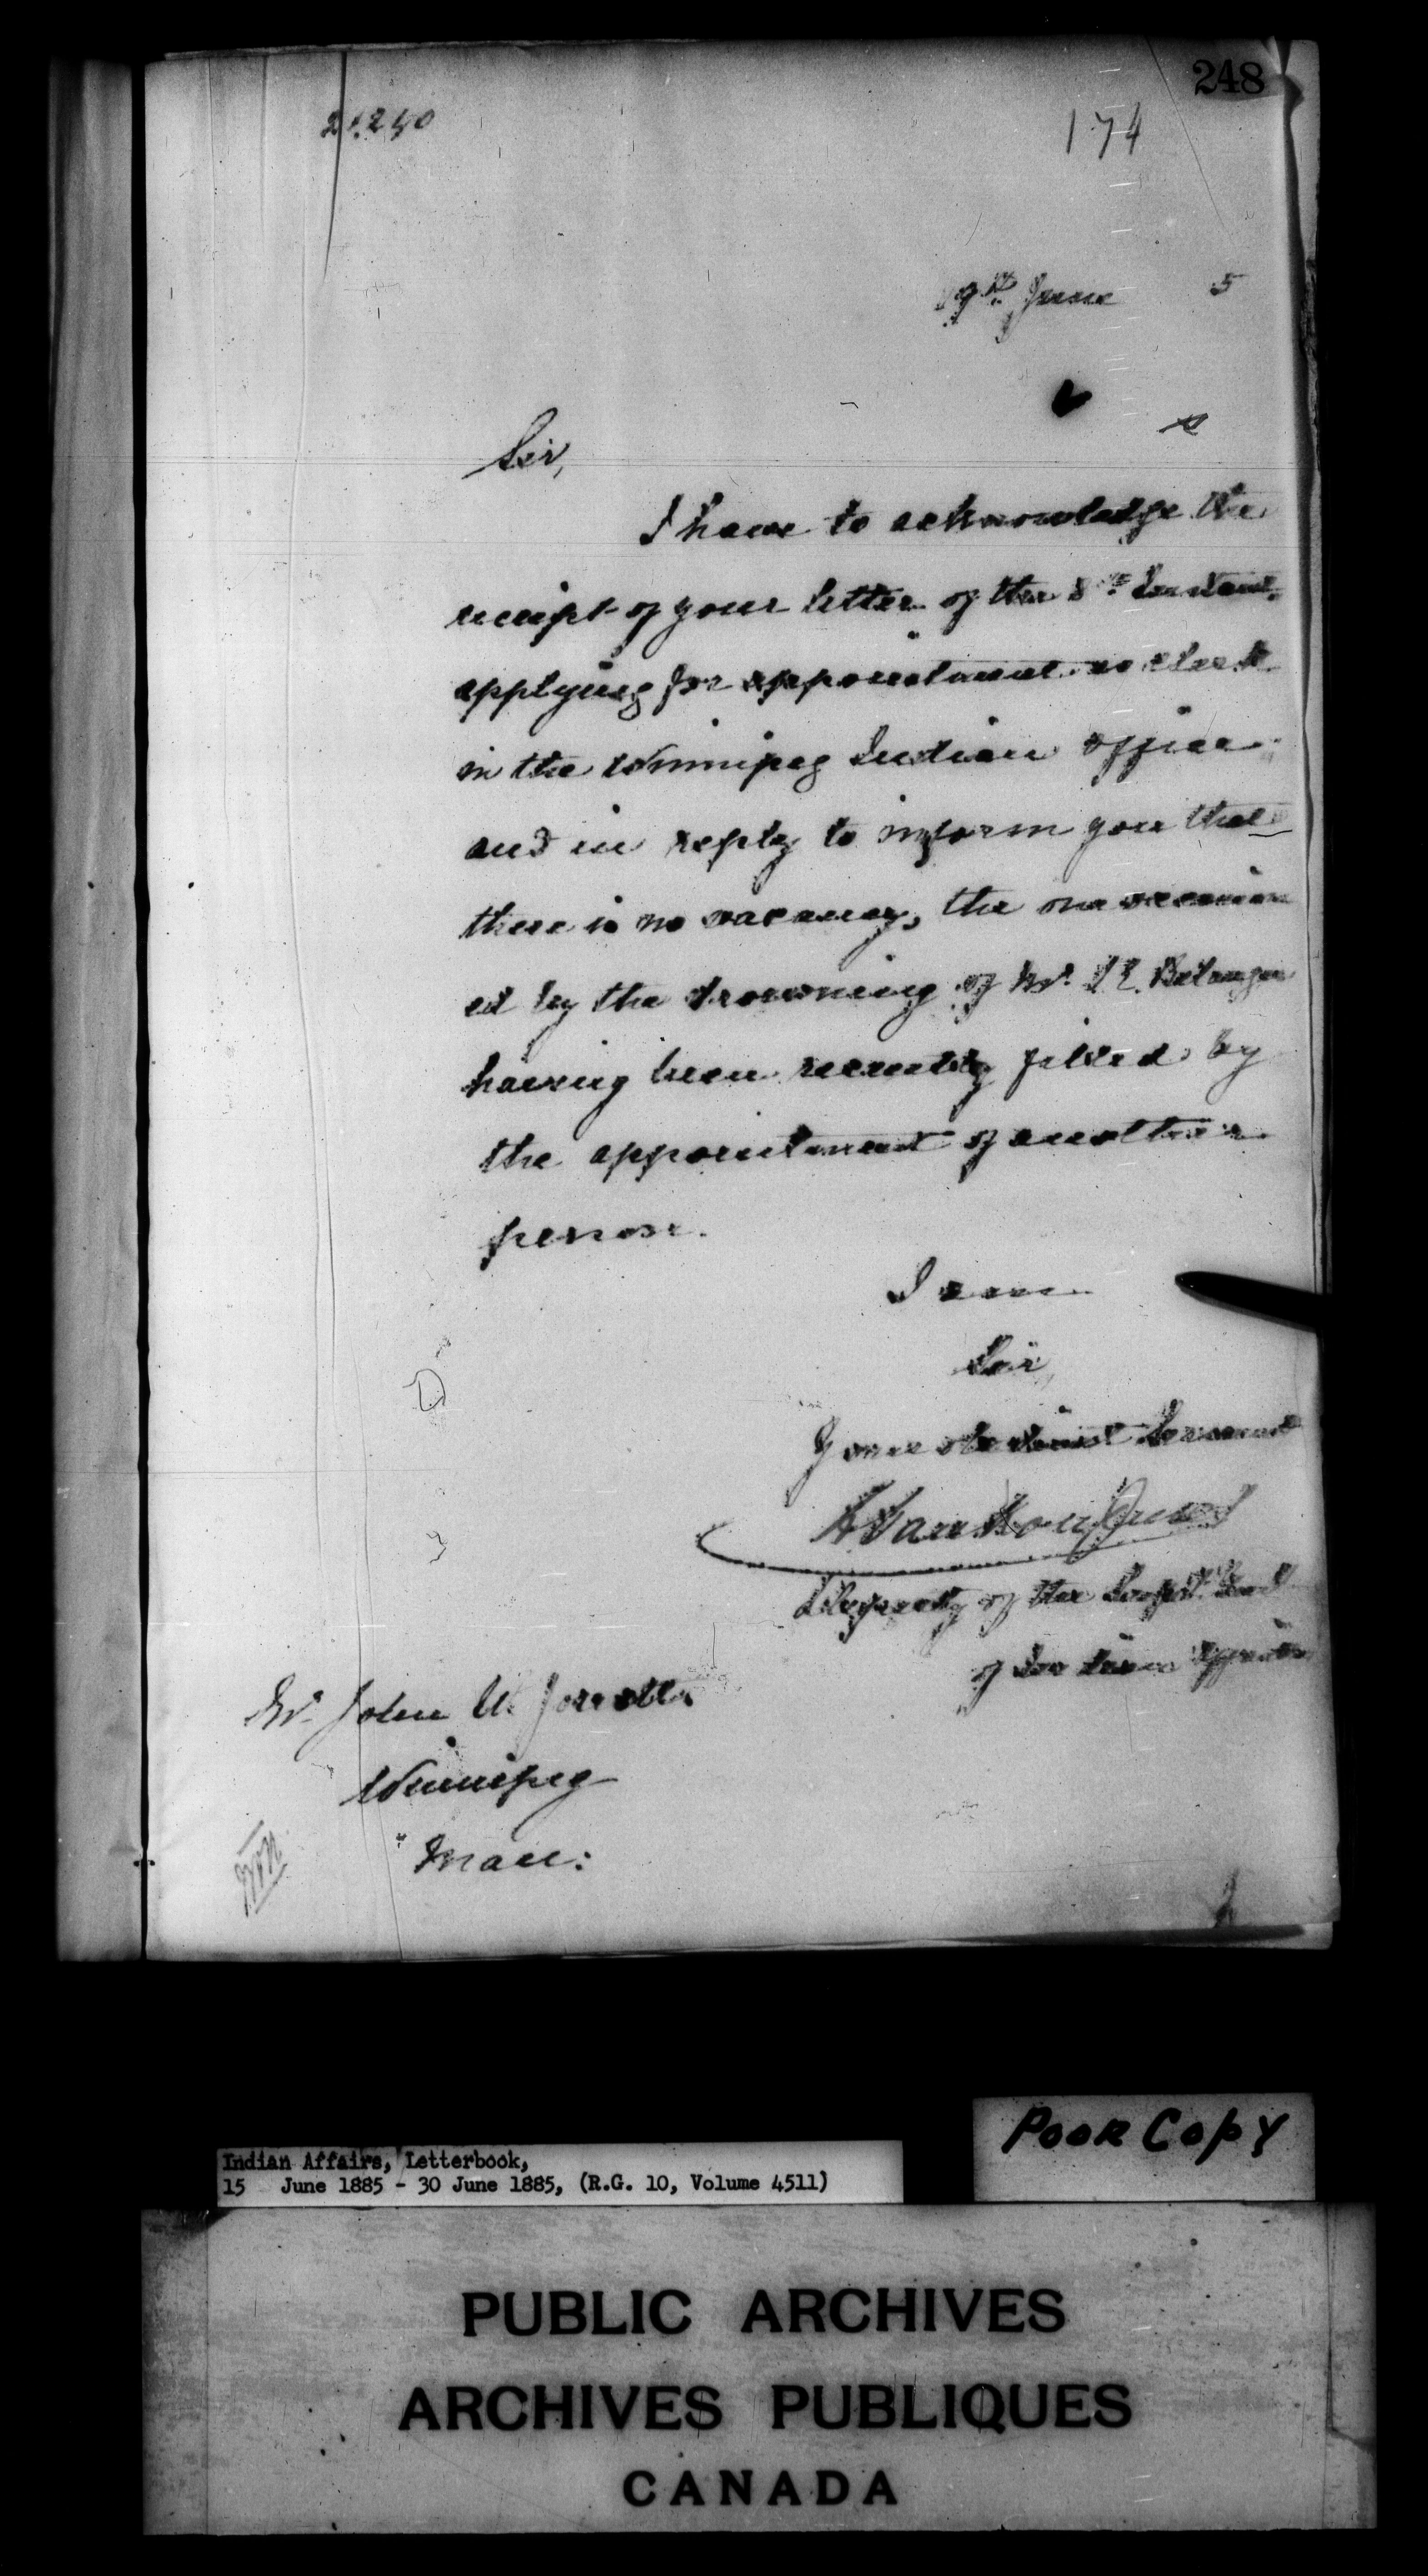 248
174
19th June 5
Sir,
I have to acknowledge the
receipt of your letter of the 8th Instant,
applying for appointment as clerk
in the Winnipeg Indian office
and in reply to inform you that
there is no vacancy, the one occasion
ed by the drowning of Mr. Belanger
having been recently filled by
the appointment of another
person.
I am
Sir,
Your obedient Servant
L VanKoughnet
Deputy of the Supt. Genl
of Indian Affairs
Mr. John
Winnipeg
Man:
Indian Affairs, Letterbook,
15 June 1885 - 30 June 1885, (R.G. 10, Volume 4511)
POOR COPY
PUBLIC ARCHIVES
ARCHIVES PUBLIQUES
CANADA